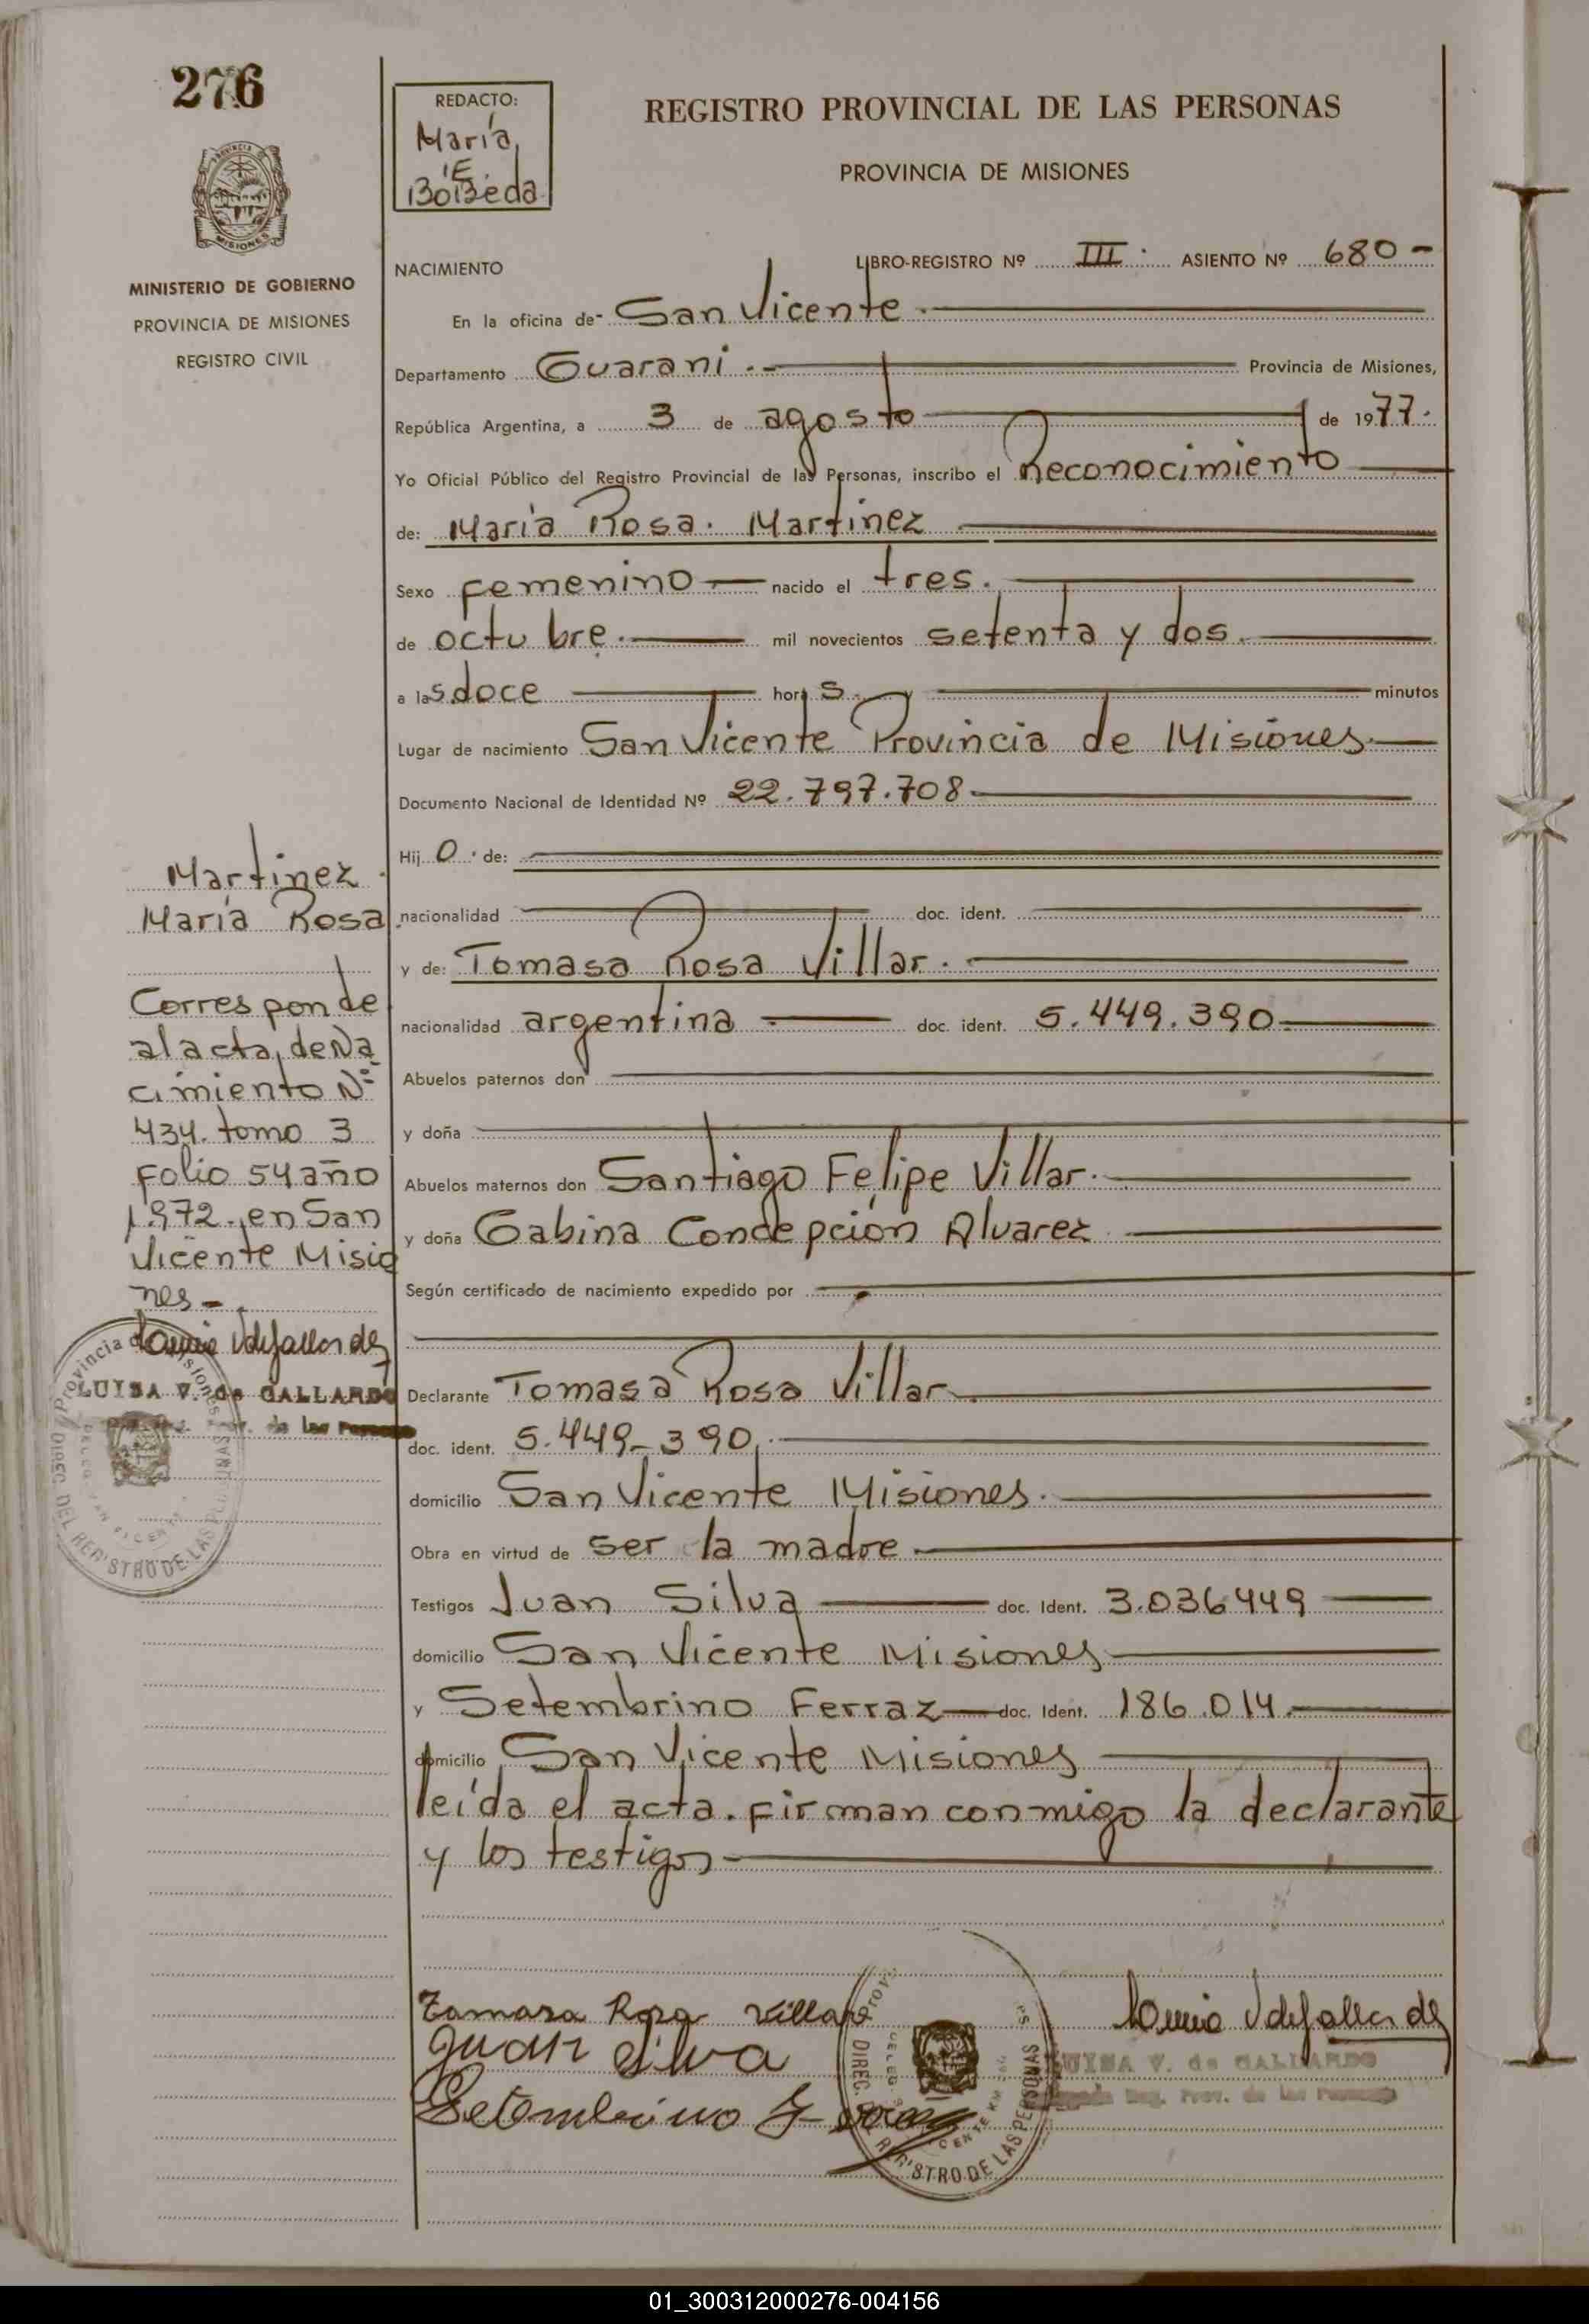 276
REDACTO:
María
E
Bobeda
REGISTRO PROVINCIAL DE LAS PERSONAS
PROVINCIA DE MISIONES
MISIONES
MINISTERIO DE GOBIERNO
PROVINCIA DE MISIONES
REGISTRO CIVIL
NACIMIENTO
LIBRO-REGISTRO Nº III. ASIENTO Nº 680-
En la oficina de San Vicente
Departamento Guarani.- Provincia de Misiones,
República Argentina, a 3 de agosto de 1977.
Yo Oficial Público del Registro Provincial de las Personas, inscribo el Reconocimiento
de: María Rosa. Martinez
Sexo Femenino nacido el tres.
de octubre. mil novecientos setenta y dos.
a las doce horas. y minutos
Lugar de nacimiento San Vicente Provincia de Misiones.
Documento Nacional de Identidad Nº 22.797.708
Hij O. de:
nacionalidad doc. ident.
y de: Tomasa Rosa Villar.
nacionalidad argentina doc. ident. 5.449.390
Abuelos paternos don
y doña
Abuelos maternos don Santiago Felipe Villar.
y doña Gabina Concepción Alvarez
Según certificado de nacimiento expedido por
Declarante Tomasa Rosa Villar
doc. ident. 5.449-390.
domicilio San Vicente Misiones.
Obra en virtud de ser la madre
Testigos Juan Silva doc. Ident. 3.036449
domicilio San Vicente Misiones
y Setembrino Ferraz doc. Ident. 186.014.
domicilio San Vicente Misiones
leída el acta. Firman conmigo la declarante
y los testigos
Martinez
María Rosa
Corresponde
al acta de Na
cimiento Nº
434. tomo 3
Folio 54 año
1972. en San
Vicente Misio
nes-
LUISA V. de GALLARDO
de las
Provincia de Misiones
DIREC. DEL REGISTRO DE LAS PERSONAS
Tamasa Rosa Villar
Juan Silva
Setembrino
DIREC. REGISTRO DE LAS PERSONAS
LUISA V. de GALLARDO
Reg. Prov. de las Personas
01_300312000276-004156